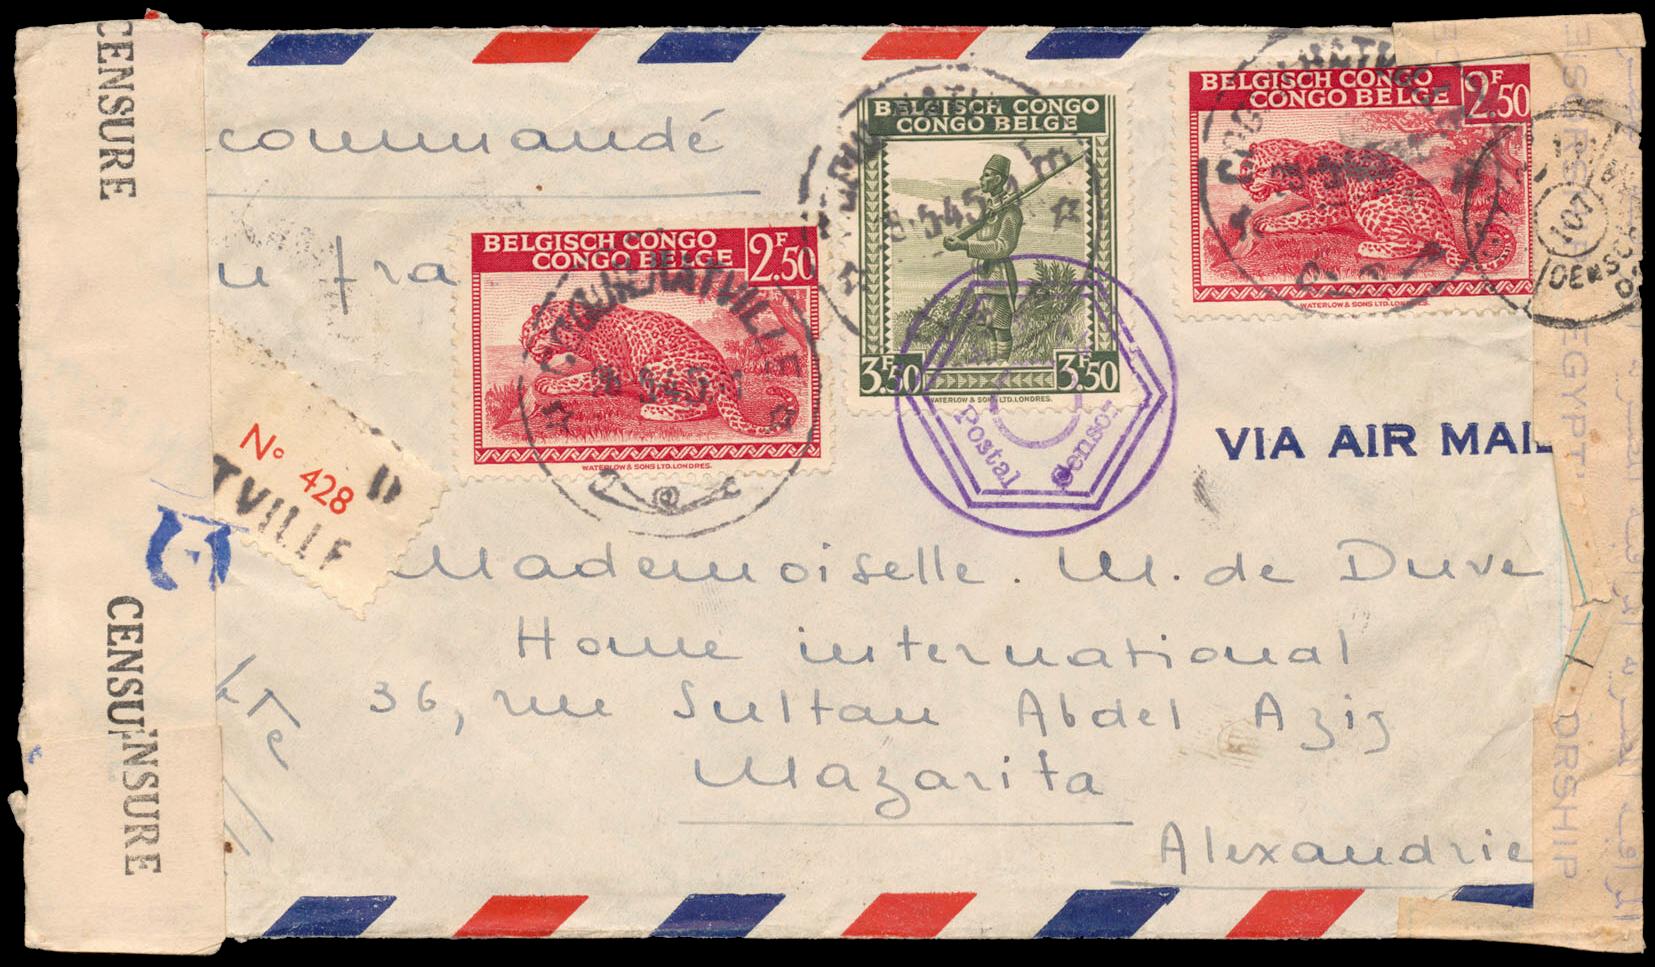 CENSURE
commandé
BELGISCH CONGO
CONGO BELGE
2F.50
WATERLOW & SONS LTD. LONDRES.
BELGISCH CONGO
CONGO BELGE
3F50
3F50
WATERLOW & SONS LTD. LONDRES.
BELGISCH CONGO
CONGO BELGE
2F.50
WATERLOW & SONS LTD. LONDRES.
COQUILHATVILLE
Postal Censor
107
CENSOR
EGYPT
ORSHIP
VIA AIR MAIL
No 428
TVILLE
Mademoiselle. M. de Duve
Home international
36, rue Sultan Abdel Aziz
Mazarita
Alexandrie
CENSU
NSURE